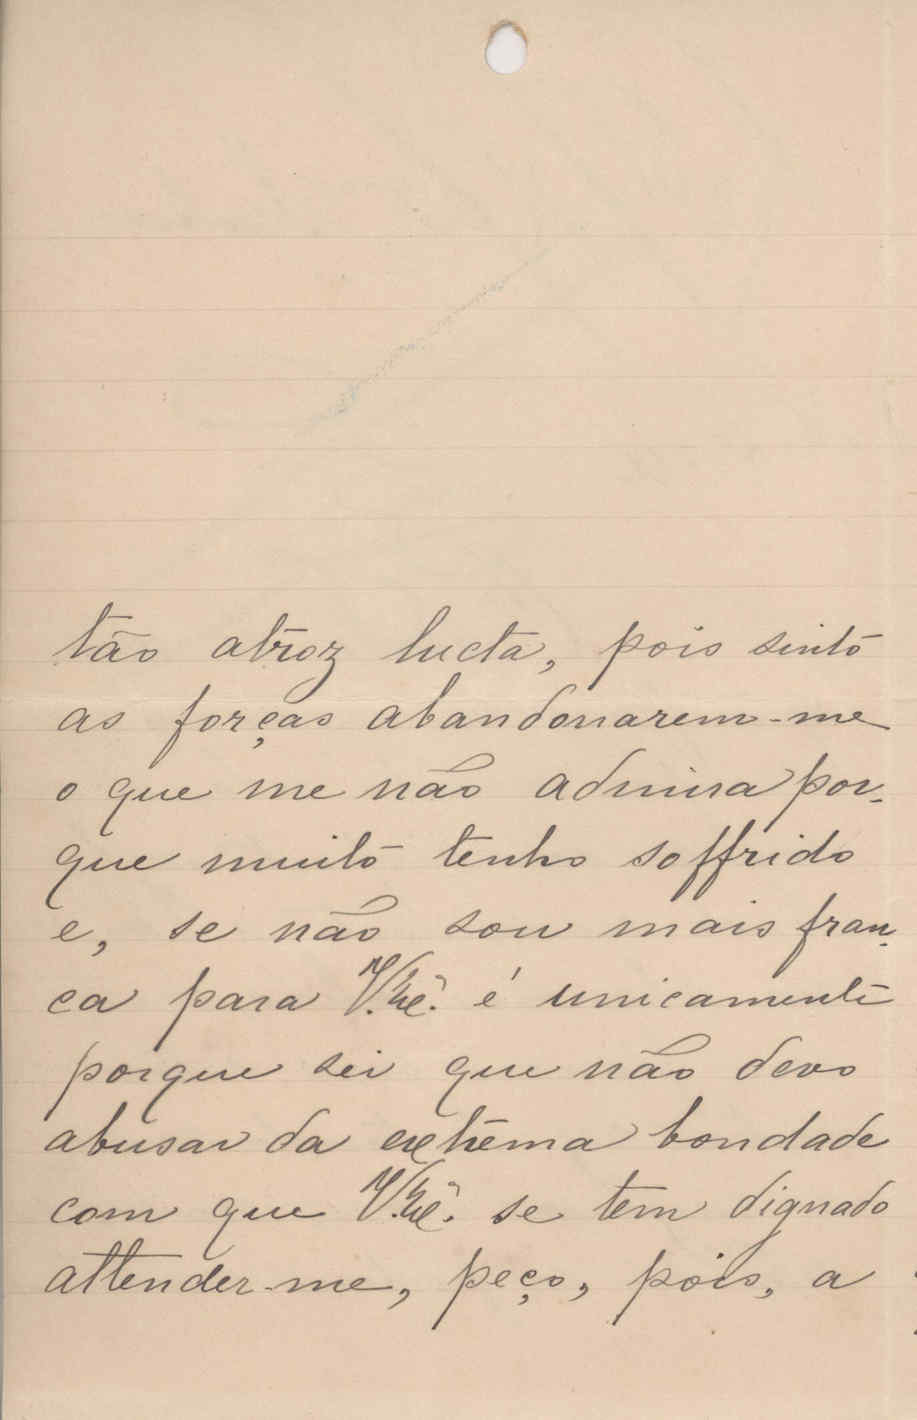 tão atroz lucta, pois sinto
as forças abandonarem-me
o que me não admira por-
que muito tenho soffrido
e, se não sou mais fran-
ca para V. Exᶜ. é unicamente
porque sei que não devo
abusar da extrema bondade
com que V. Exᶜ. se tem dignado
attender-me, peço, pois, a